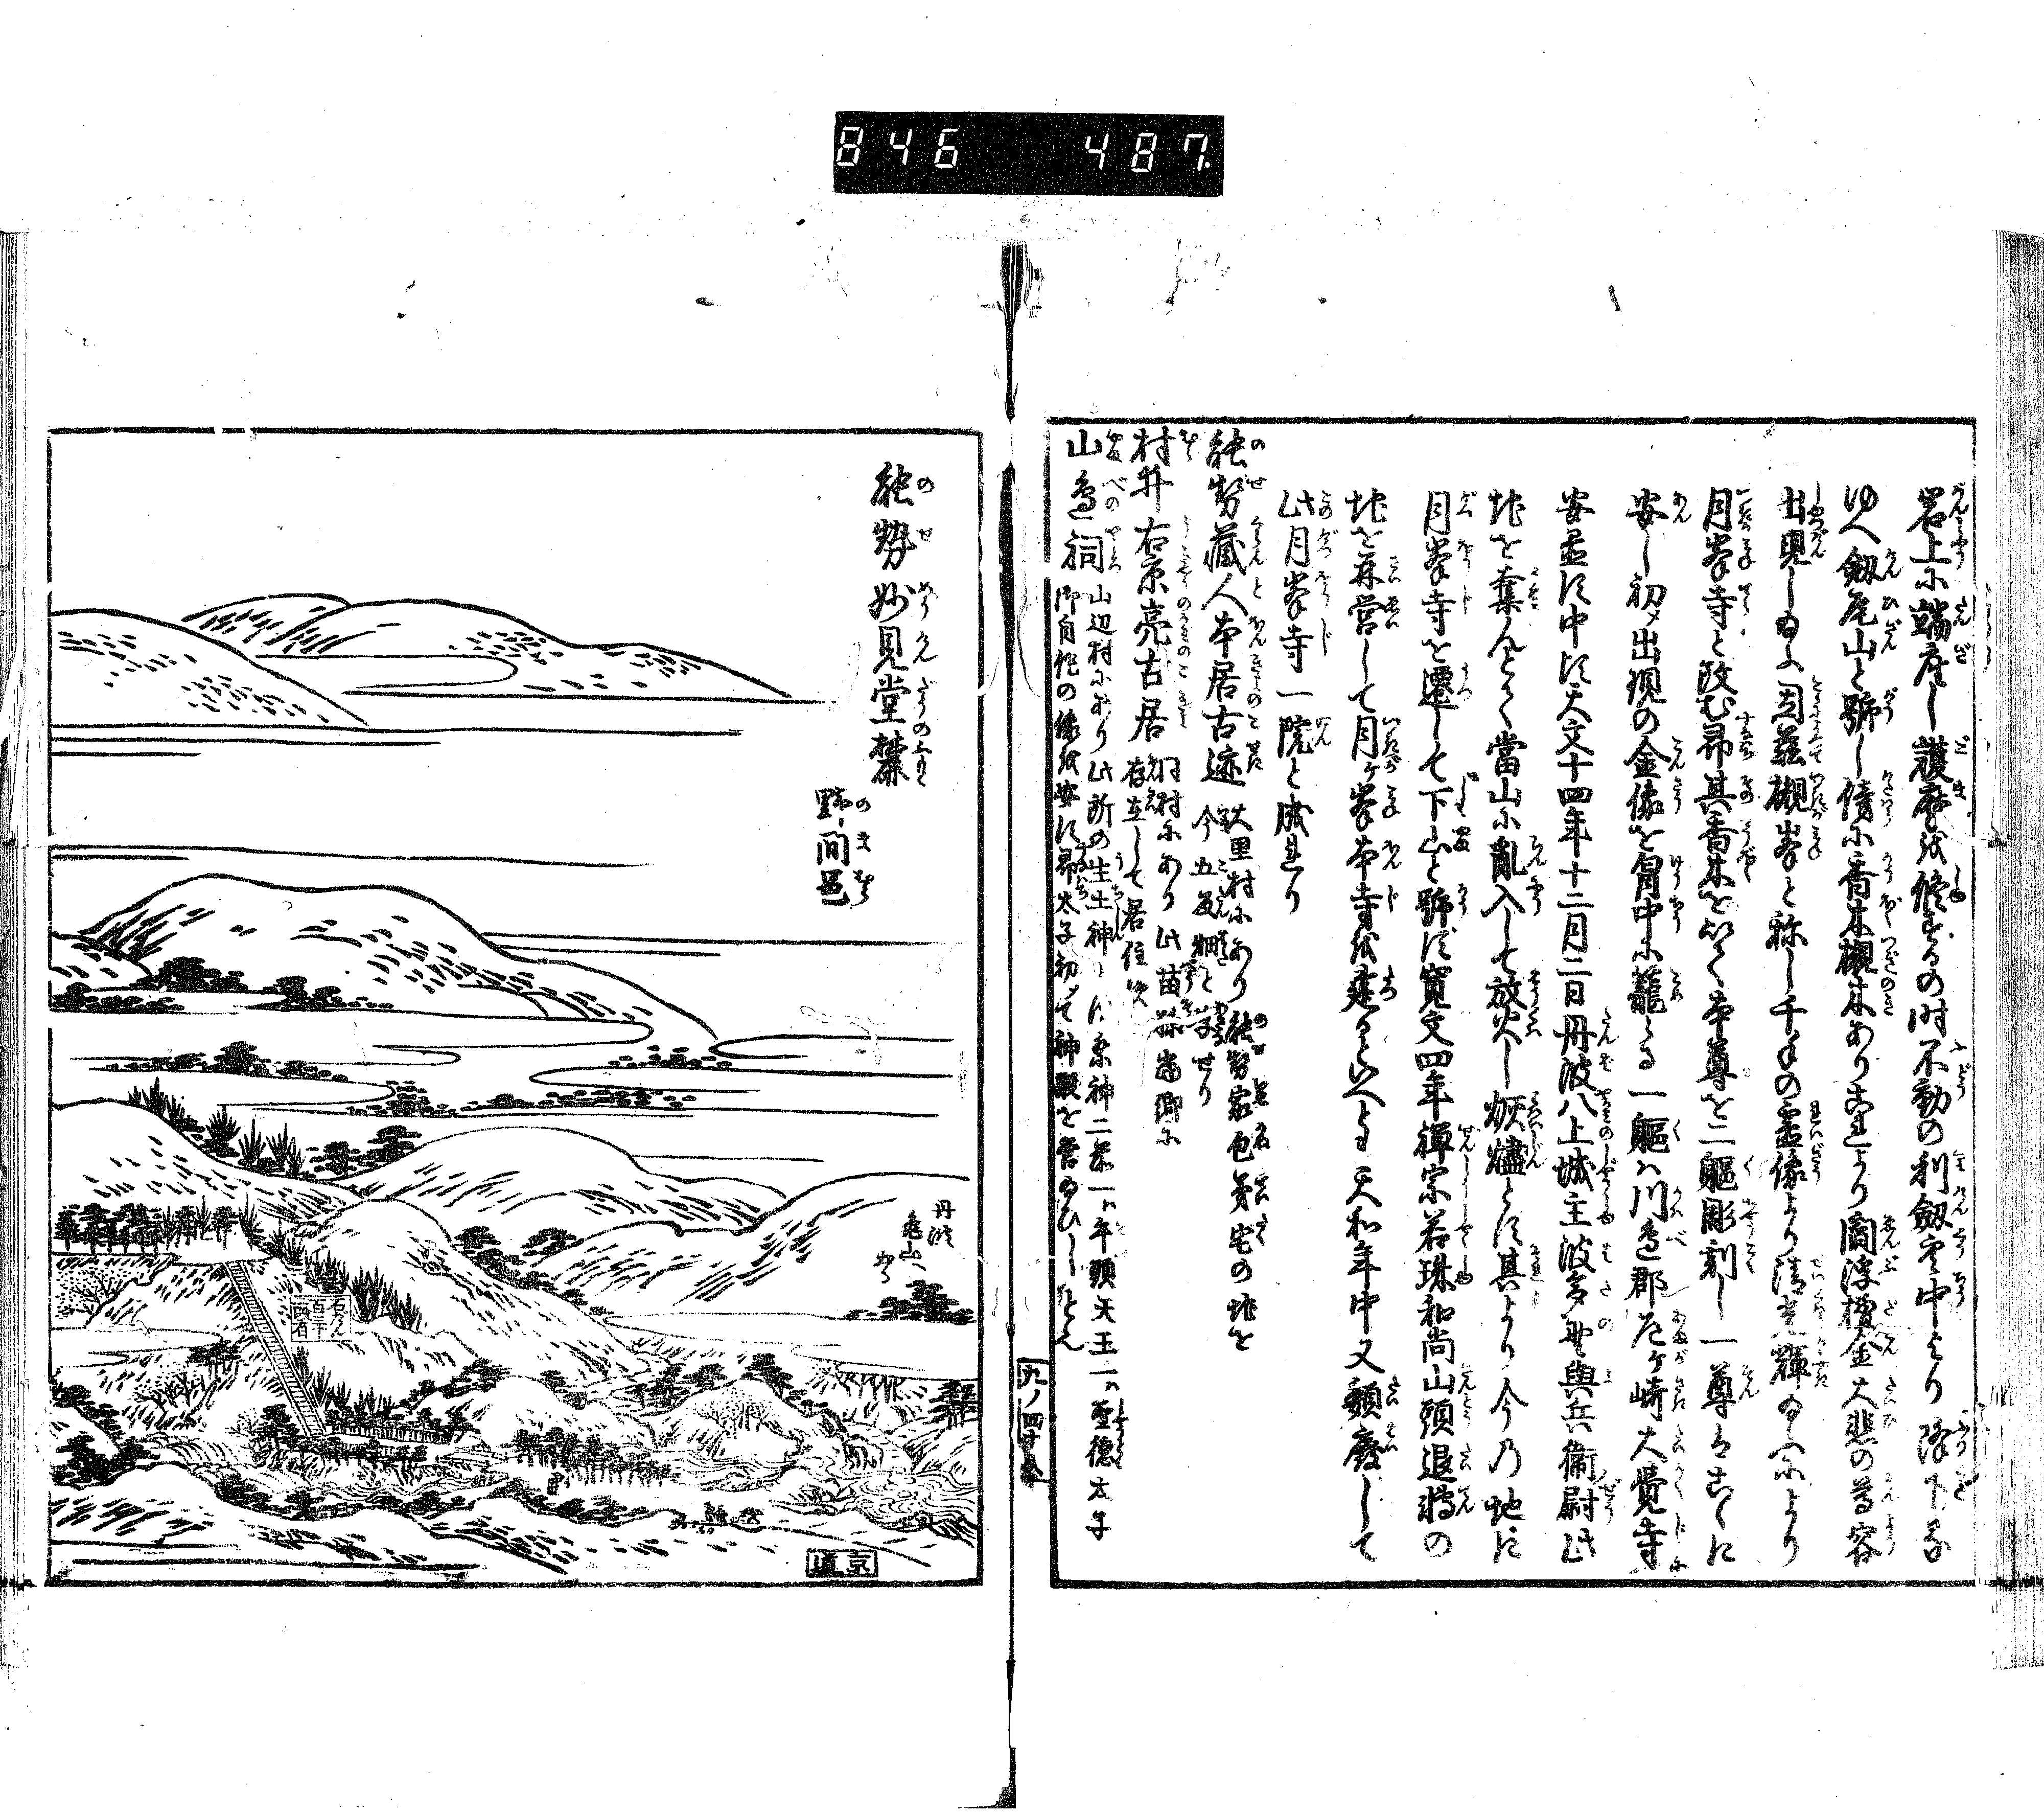 846 487
岩上に端座し護摩を修するの時不動の利劔空中より降下る
ゆへ劔尾山と號し傍に香木槻木あり是より閻浮檀金大悲の尊容
出現し給ふ因茲槻峯と称し千手の霊像より清光輝給ふにより
月峯寺と改む昴其香木を以て本尊を二軀彫刻し一尊はこゝに
安し初メ出現の金像を胷中に籠る一軀ハ川邊郡尼ヶ崎大覺寺
安置す中に天文十四年十二月二日丹波八上城主波多野與兵衛尉此
地を奪んとて當山に亂入して放火し灰燼とす其より今の地に
月峯寺を遷して下山と號す寛文四年禅宗若珠和尚山頭退轉の
地を再営して月ヶ峯本寺を建るといへとも天和年中又頽廢して
此月峯寺一院と成れり
能勢藏人本居古迹 大里村にあり能勢家包第宅の地を
今五反畑と字せり
村井右京亮古居 同村にあり此苗孫當郷に
存在して居住す
山邊祠 山辺村にあり此所の生土神とす祭神二座一ハ牛頭天王一ハ聖徳太子
御自作の像を安す昴太子初めて神殿を営給ひしとそ
九ノ四十
能勢妙見堂麓
野間邑
丹波
亀山へ
石かん
百丁
両者
京道